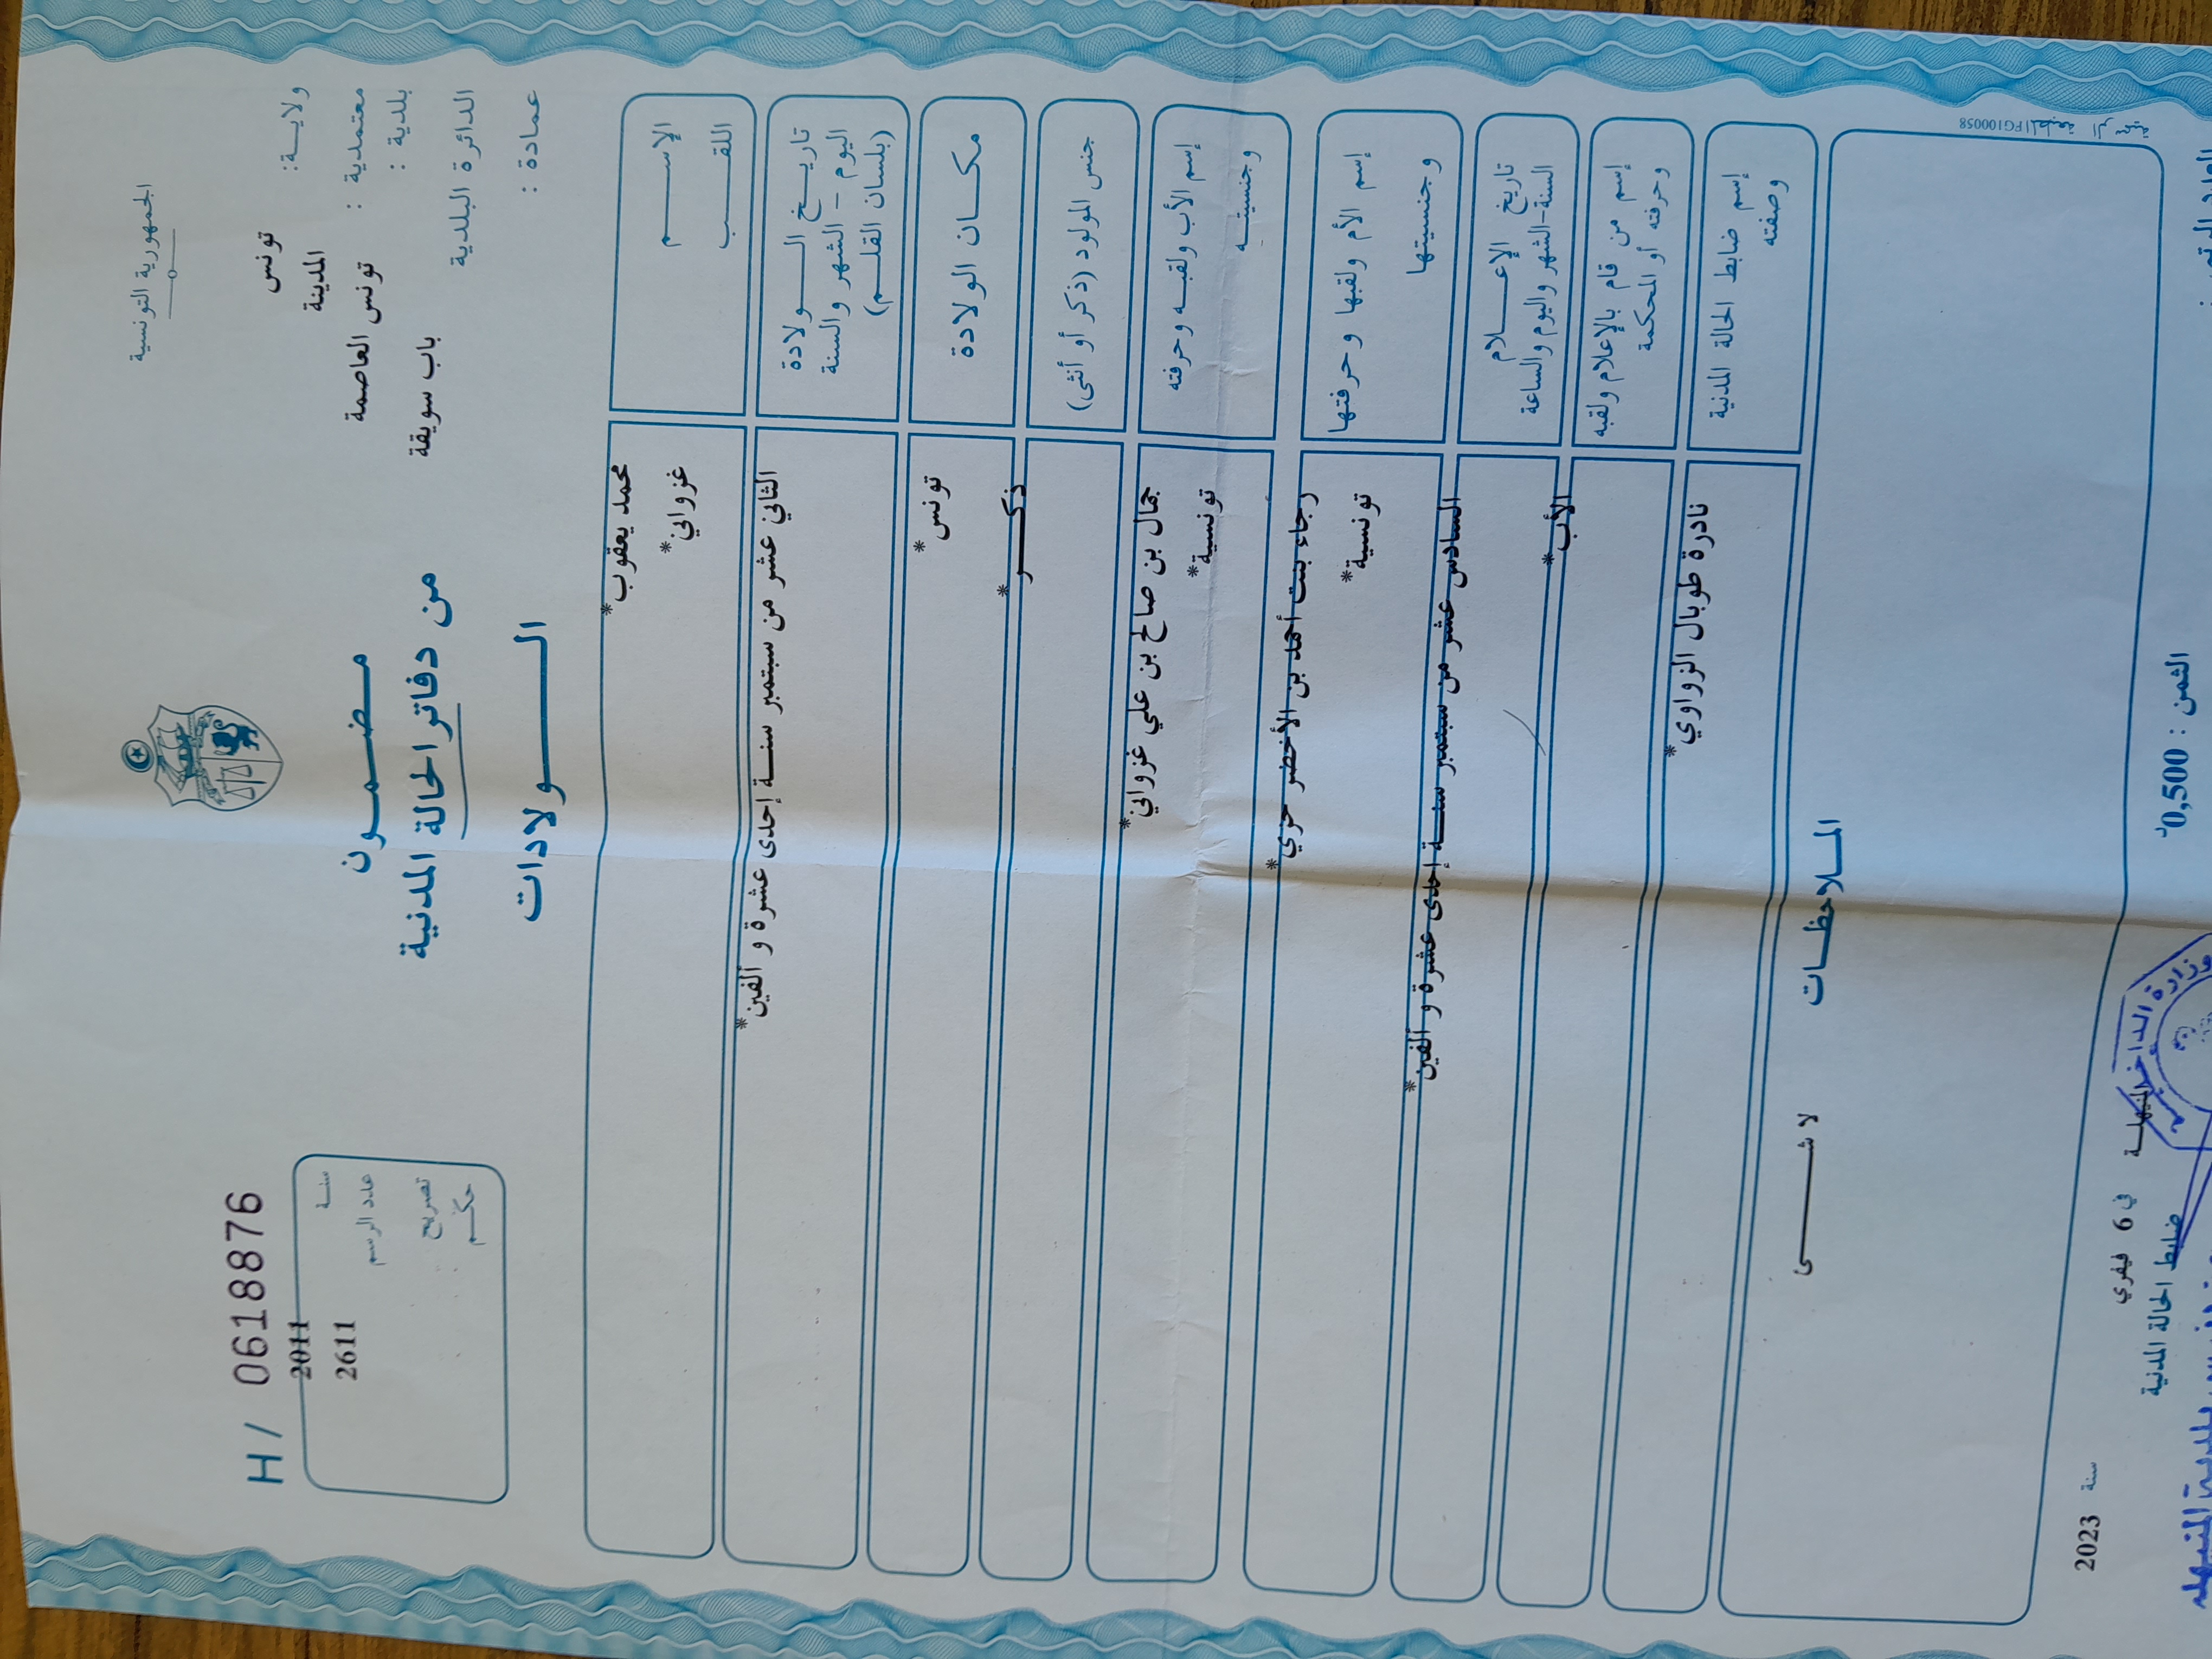 الجمهورية التونسية
ولايــة: تونس
المدينة
معتمدية : تونس العاصمة
بلدية :
الدائرة البلدية باب سويقة
عمادة :
H/ 0618876
سنة 2011
عدد الرسم 2611
تصريح
حكم
مضمون
من دفاتر الحالة المدنية
الولادات
الإسم محمد يعقوب*
اللقب غزواني*
تاريخ الولادة
اليوم - الشهر والسنة
(بلسان القلم)
الثاني عشر من سبتمبر سنة إحدى عشرة و ألفين*
مكان الولادة تونس*
جنس المولود (ذكر أو أنثى) ذكر*
إسم الأب ولقبه وحرفته جمال بن صالح بن علي غزواني*
وجنسيته تونسية*
إسم الأم ولقبها وحرفتها رجاء بنت أحمد بن الأخضر حزي*
وجنسيتها تونسية*
تاريخ الإعلام
السنة-الشهر واليوم والساعة
السادس عشر من سبتمبر سنة إحدى عشرة و ألفين*
إسم من قام بالإعلام ولقبه
وحرفته أو المحكمة
الأب*
إسم ضابط الحالة المدنية
وصفته
نادرة طوبال الزواوي*
الملاحظات
لا شيء
المطبعة الرسمية PG100058
المنيهلة في 6 فيفري سنة 2023
ضابط الحالة المدنية
وزارة الداخلية
الثمن : 0,500د